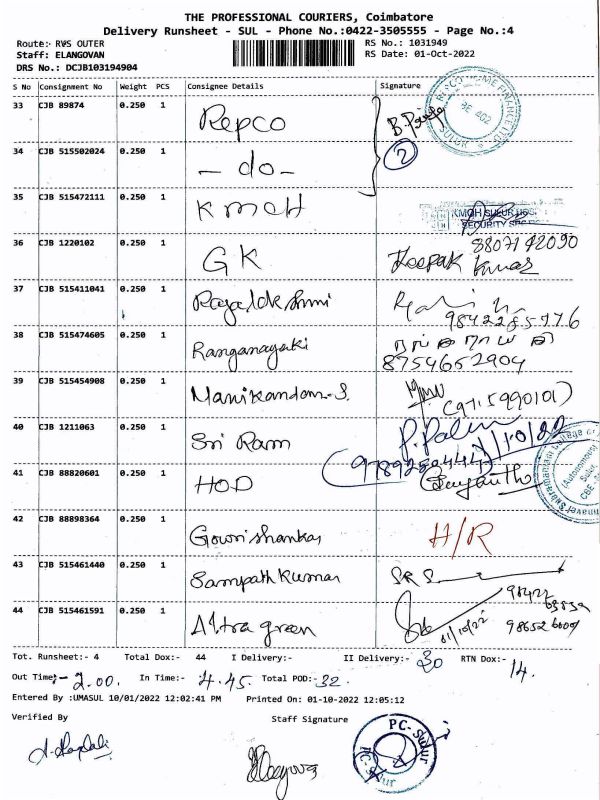 THE PROFESSIONAL COURIERS, Coimbatore
Delivery Runsheet - SUL - Phone No.:0422-3505555 - Page No.:4
Route:- RWS OUTER RS No.: 1031949
Staff: ELANGOVAN RS Date: 01-Oct-2022
DRS No.: DCJB103194904
S No Consignment No Weight PCS Consignee Details Signature
33 CJB 89874 0.250 1 Repco
34 CJB 515502024 0.250 1 - do - 2
35 CJB 515472111 0.250 1 KMCH KMCH SULUR
36 CJB 1220102 0.250 1 GK Deepak Kumar 8807142090
37 CJB 515411041 0.250 1 Rajalakshmi
9842285776
38 CJB 515474605 0.250 1 Ranganayaki
8754652904
39 CJB 515454908 0.250 1 Manikandan-S. (9715990101)
40 CJB 1211063 0.250 1 Sri Ram
41 CJB 88820601 0.250 1 HOD
42 CJB 88898364 0.250 1 Gowrishankar H/R
43 CJB 515461440 0.250 1 Sampath Kumar SRS
44 CJB 515461591 0.250 1 Altra green 01/10/22
Tot. Runsheet:- 4 Total Dox:- 44 I Delivery:- II Delivery:- 30 RTN Dox:- 14.
Out Time:- 2.00. In Time:- 4.45. Total POD:- 32.
Entered By :UMASUL 10/01/2022 12:02:41 PM Printed On: 01-10-2022 12:05:12
Verified By Staff Signature
PC-Sulur